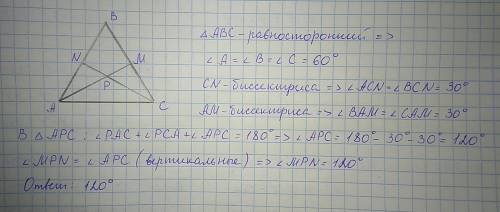 B
N
M
P
A
C
△ABC - равносторонний =>
∠A = ∠B = ∠C = 60°
CN - биссектриса => ∠ACN = ∠BCN = 30°
AM - биссектриса => ∠BAM = ∠CAM = 30°
В △APC: ∠PAC + ∠PCA + ∠APC = 180° => ∠APC = 180° - 30° - 30° = 120°
∠MPN = ∠APC (вертикальные) => ∠MPN = 120°
Ответ: 120°